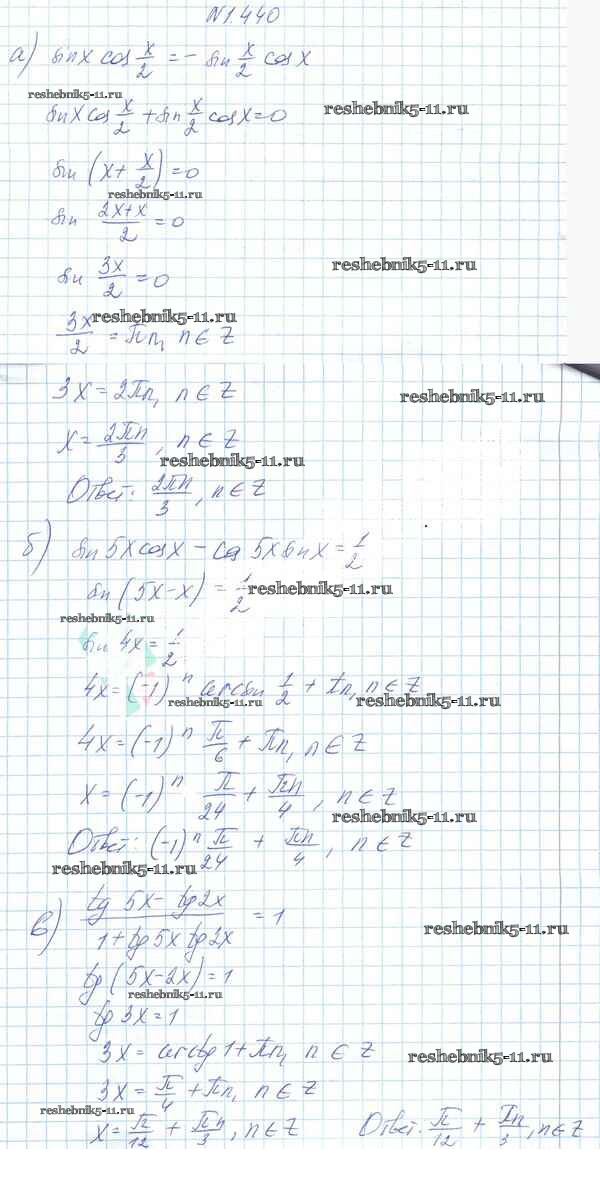 N1.440
а) sin x cos x/2 = - sin x/2 cos x
reshebnik5-11.ru
reshebnik5-11.ru
sin x cos x/2 + sin x/2 cos x = 0
sin (x + x/2) = 0
reshebnik5-11.ru
sin (2x+x)/2 = 0
sin 3x/2 = 0
reshebnik5-11.ru
reshebnik5-11.ru
3x/2 = πn, n ∈ Z
3x = 2πn, n ∈ Z
reshebnik5-11.ru
x = 2πn/3, n ∈ Z
reshebnik5-11.ru
Ответ: 2πn/3, n ∈ Z
б) sin 5x cos x - cos 5x sin x = 1/2
sin (5x - x) = 1/2
reshebnik5-11.ru
reshebnik5-11.ru
sin 4x = 1/2
4x = (-1)^n arcsin 1/2 + πn, n ∈ Z
reshebnik5-11.ru
reshebnik5-11.ru
4x = (-1)^n π/6 + πn, n ∈ Z
x = (-1)^n π/24 + πn/4, n ∈ Z
reshebnik5-11.ru
Ответ: (-1)^n π/24 + πn/4, n ∈ Z
reshebnik5-11.ru
в) (tg 5x - tg 2x)/(1 + tg 5x tg 2x) = 1
reshebnik5-11.ru
tg (5x - 2x) = 1
reshebnik5-11.ru
tg 3x = 1
3x = arctg 1 + πn, n ∈ Z
reshebnik5-11.ru
3x = π/4 + πn, n ∈ Z
reshebnik5-11.ru
x = π/12 + πn/3, n ∈ Z Ответ: π/12 + πn/3, n ∈ Z